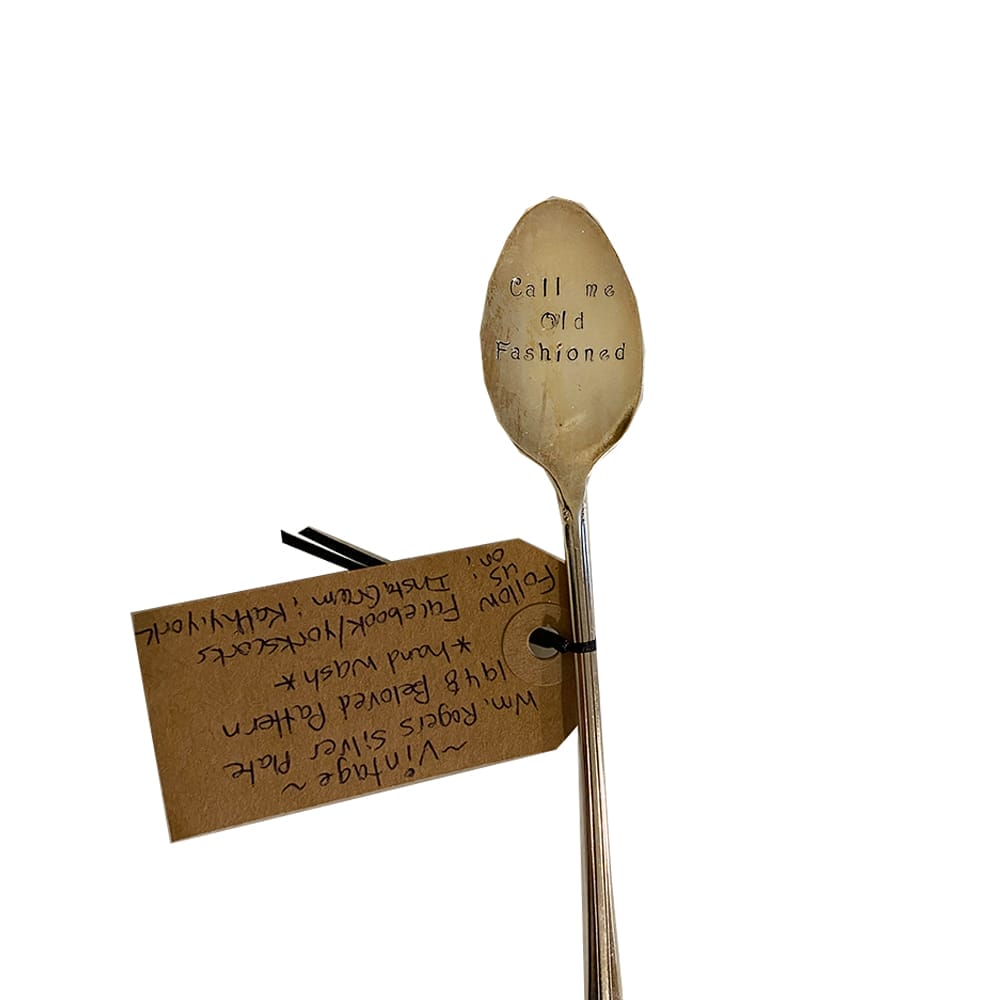 Call me
Old
Fashioned
~Vintage~
Wm. Rogers Silver Plate
1948 Beloved Pattern
*hand wash*
Follow Facebook/yorkscarts
us Instagram: Kathy.york
on: